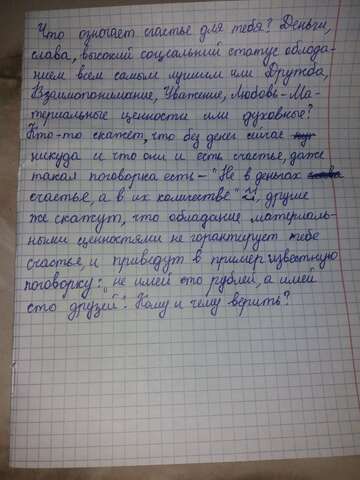 Что означает счастье для тебя? Деньги,
слава, высокий социальный статус облада-
нием всем самым лучшим или Дружба,
Взаимопонимание, Уважение, Любовь-Ма-
териальные ценности или духовные?
Кто-то скажет, что без денег сейчас
никуда и что они и есть счастье, даже
такая поговорка есть - "Не в деньгах
счастье, а в их количестве", другие
же скажут, что обладание материаль-
ными ценностями не гарантирует тебе
счастья, и приведут в пример известную
поговорку: "не имей сто рублей, а имей
сто друзей". Кому и чему верить?